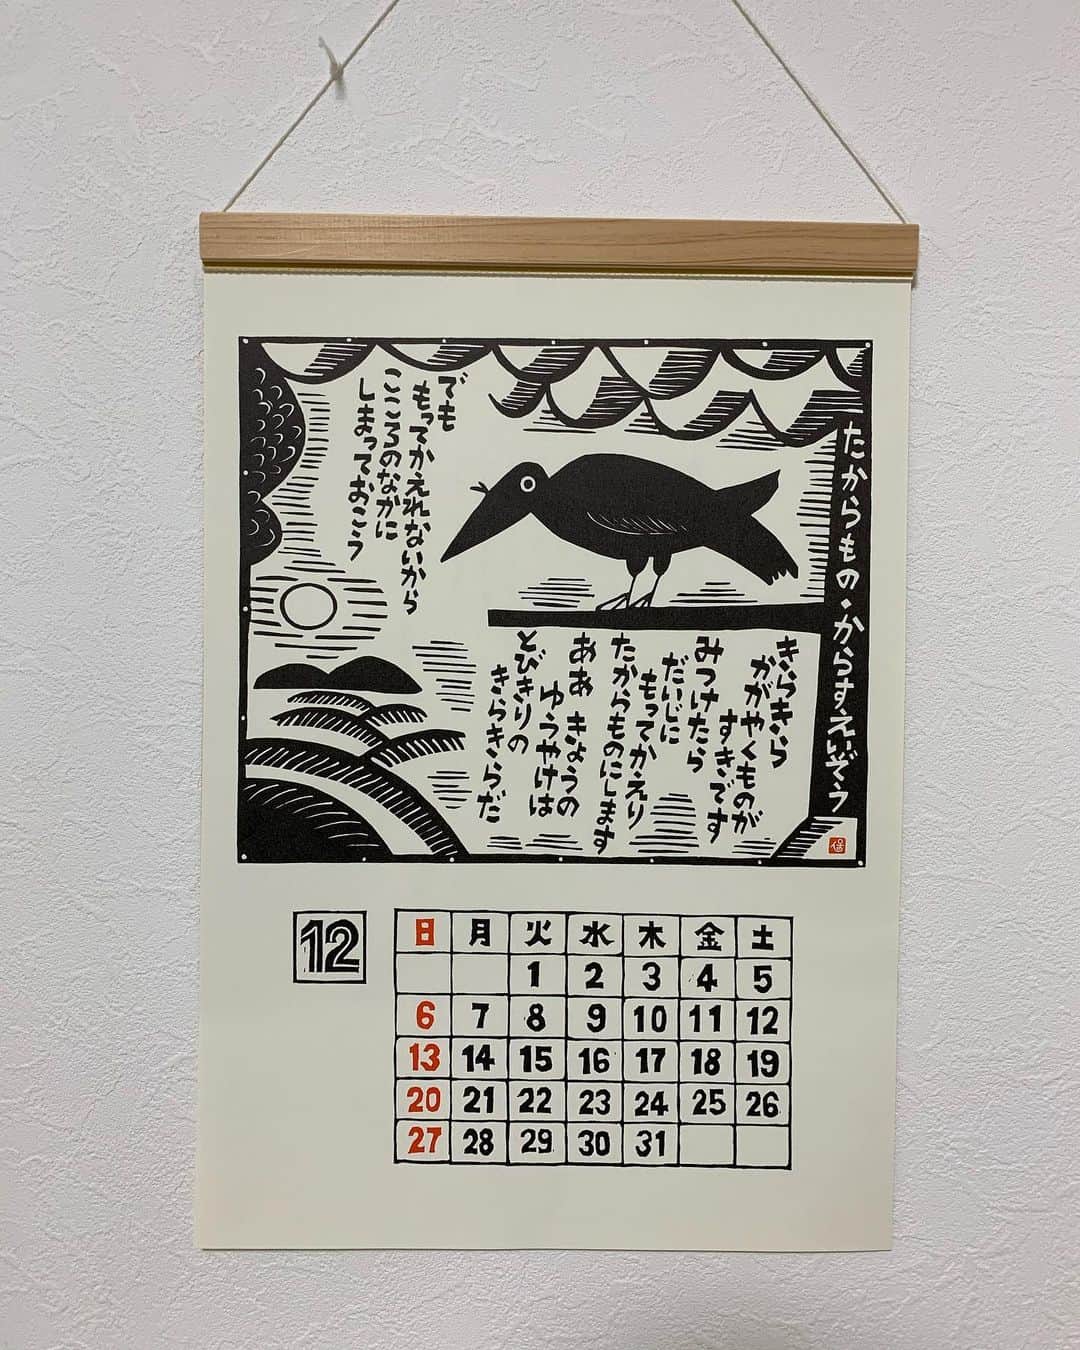 たからもの・からすえいぞう
きらきら
かがやくものが
すきです
みつけたら
だいじに
もってかえり
たからものにします
ああ きょうの
ゆうやけは
とびきりの
きらきらだ
でも
もってかえれないから
こころのなかに
しまっておこう
12
日 月 火 水 木 金 土
1 2 3 4 5
6 7 8 9 10 11 12
13 14 15 16 17 18 19
20 21 22 23 24 25 26
27 28 29 30 31